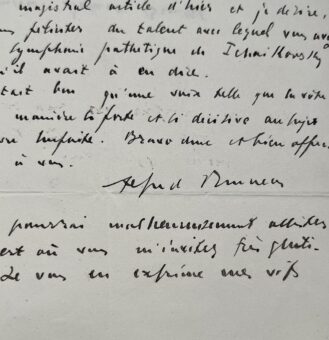 magistral article d'hier et je désire,
us féliciter du talent avec lequel vous avez
symphonie pathétique de Tchaïkovsky
u'il avait à en dire.
tait bon qu'une voix telle que la vôtre
manière si forte et si décisive au sujet
. Bravo donc et bien affec
à vous.
Alfred Bruneau
pourrai malheureusement
ert où vous m'invitez très genti-
Je vous en exprime mes vifs